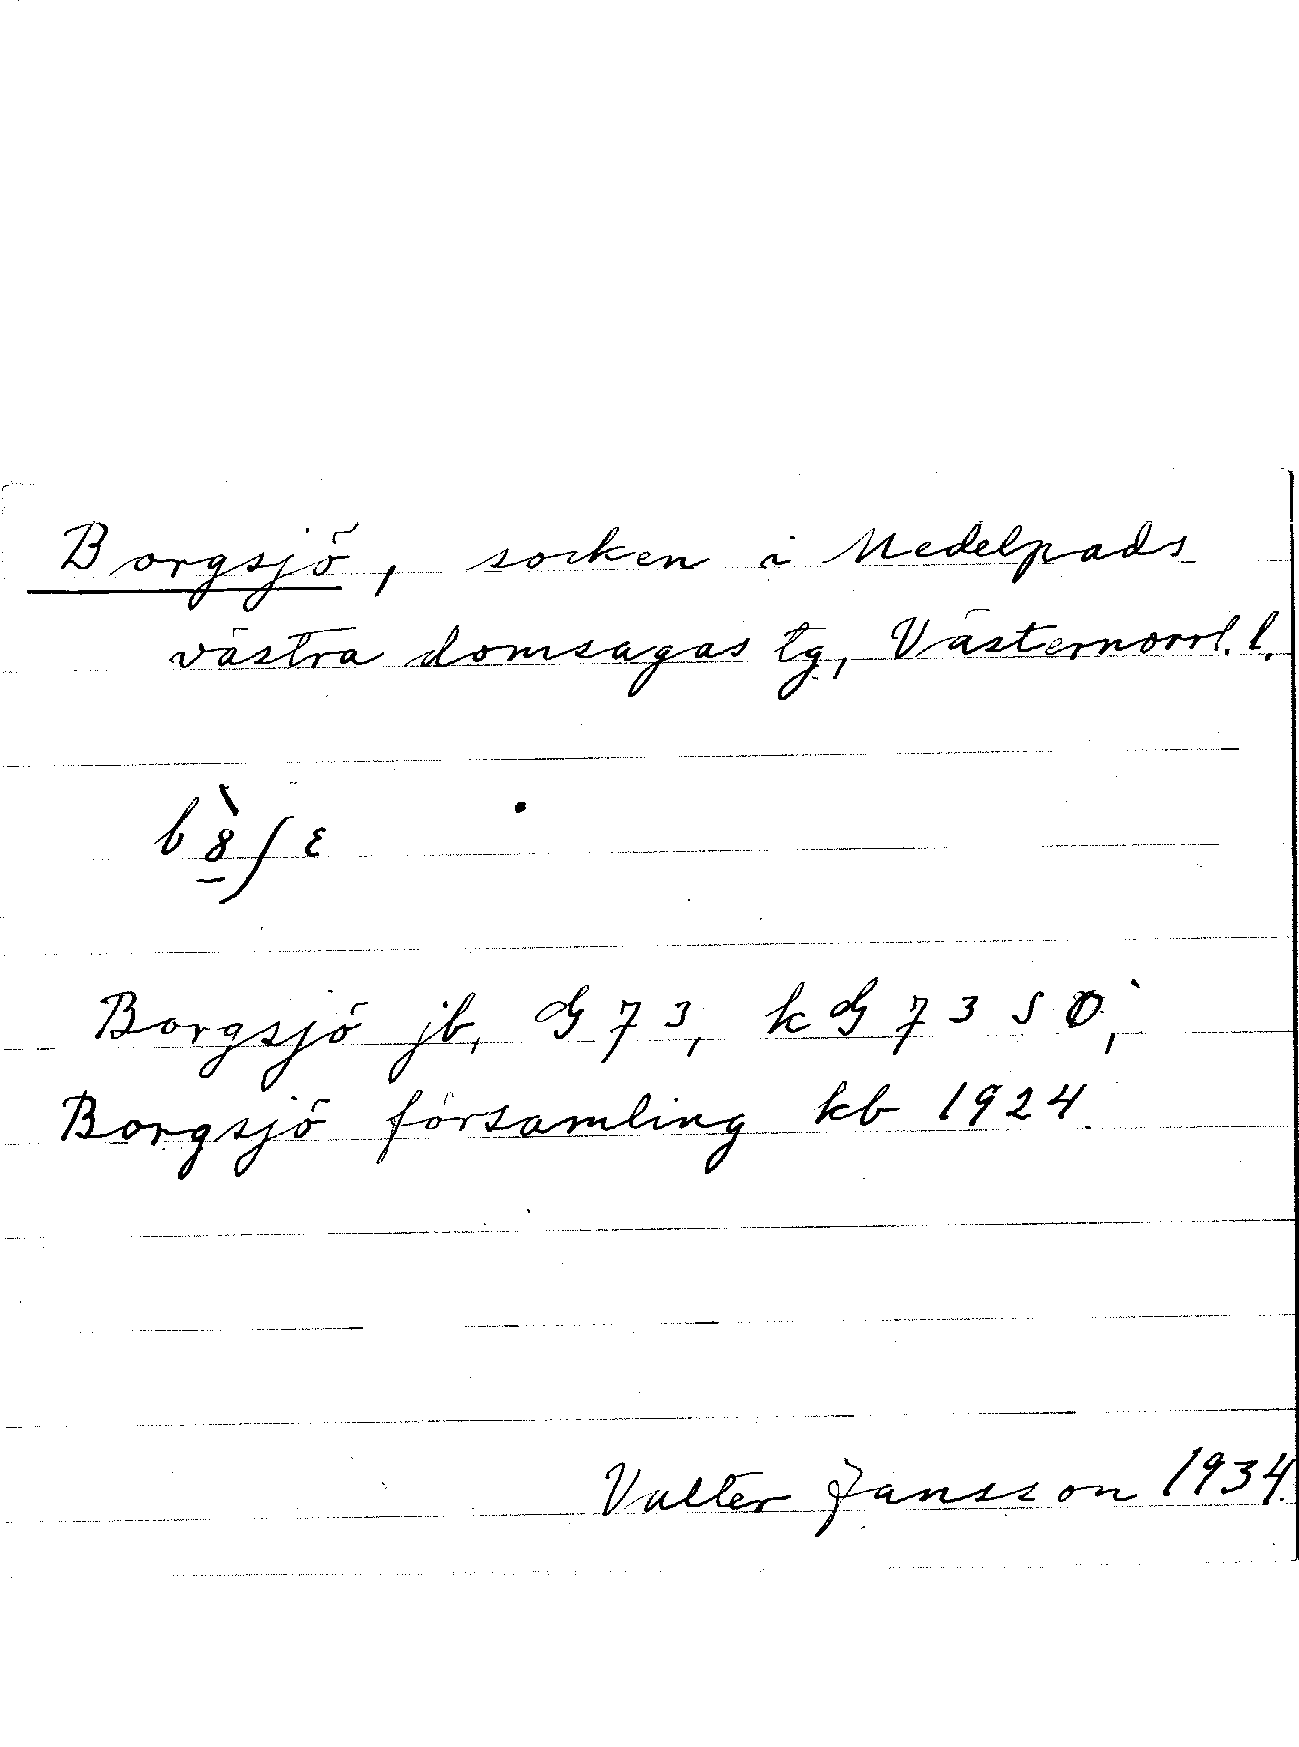 Borgsjö, socken i Medelpads
västra domsagas tg, Västernorrl. l.
Borgsjö jb, GJ 73, k GJ 73 SO;
Borgsjö församling kb 1924.
Valter Jansson 1934.